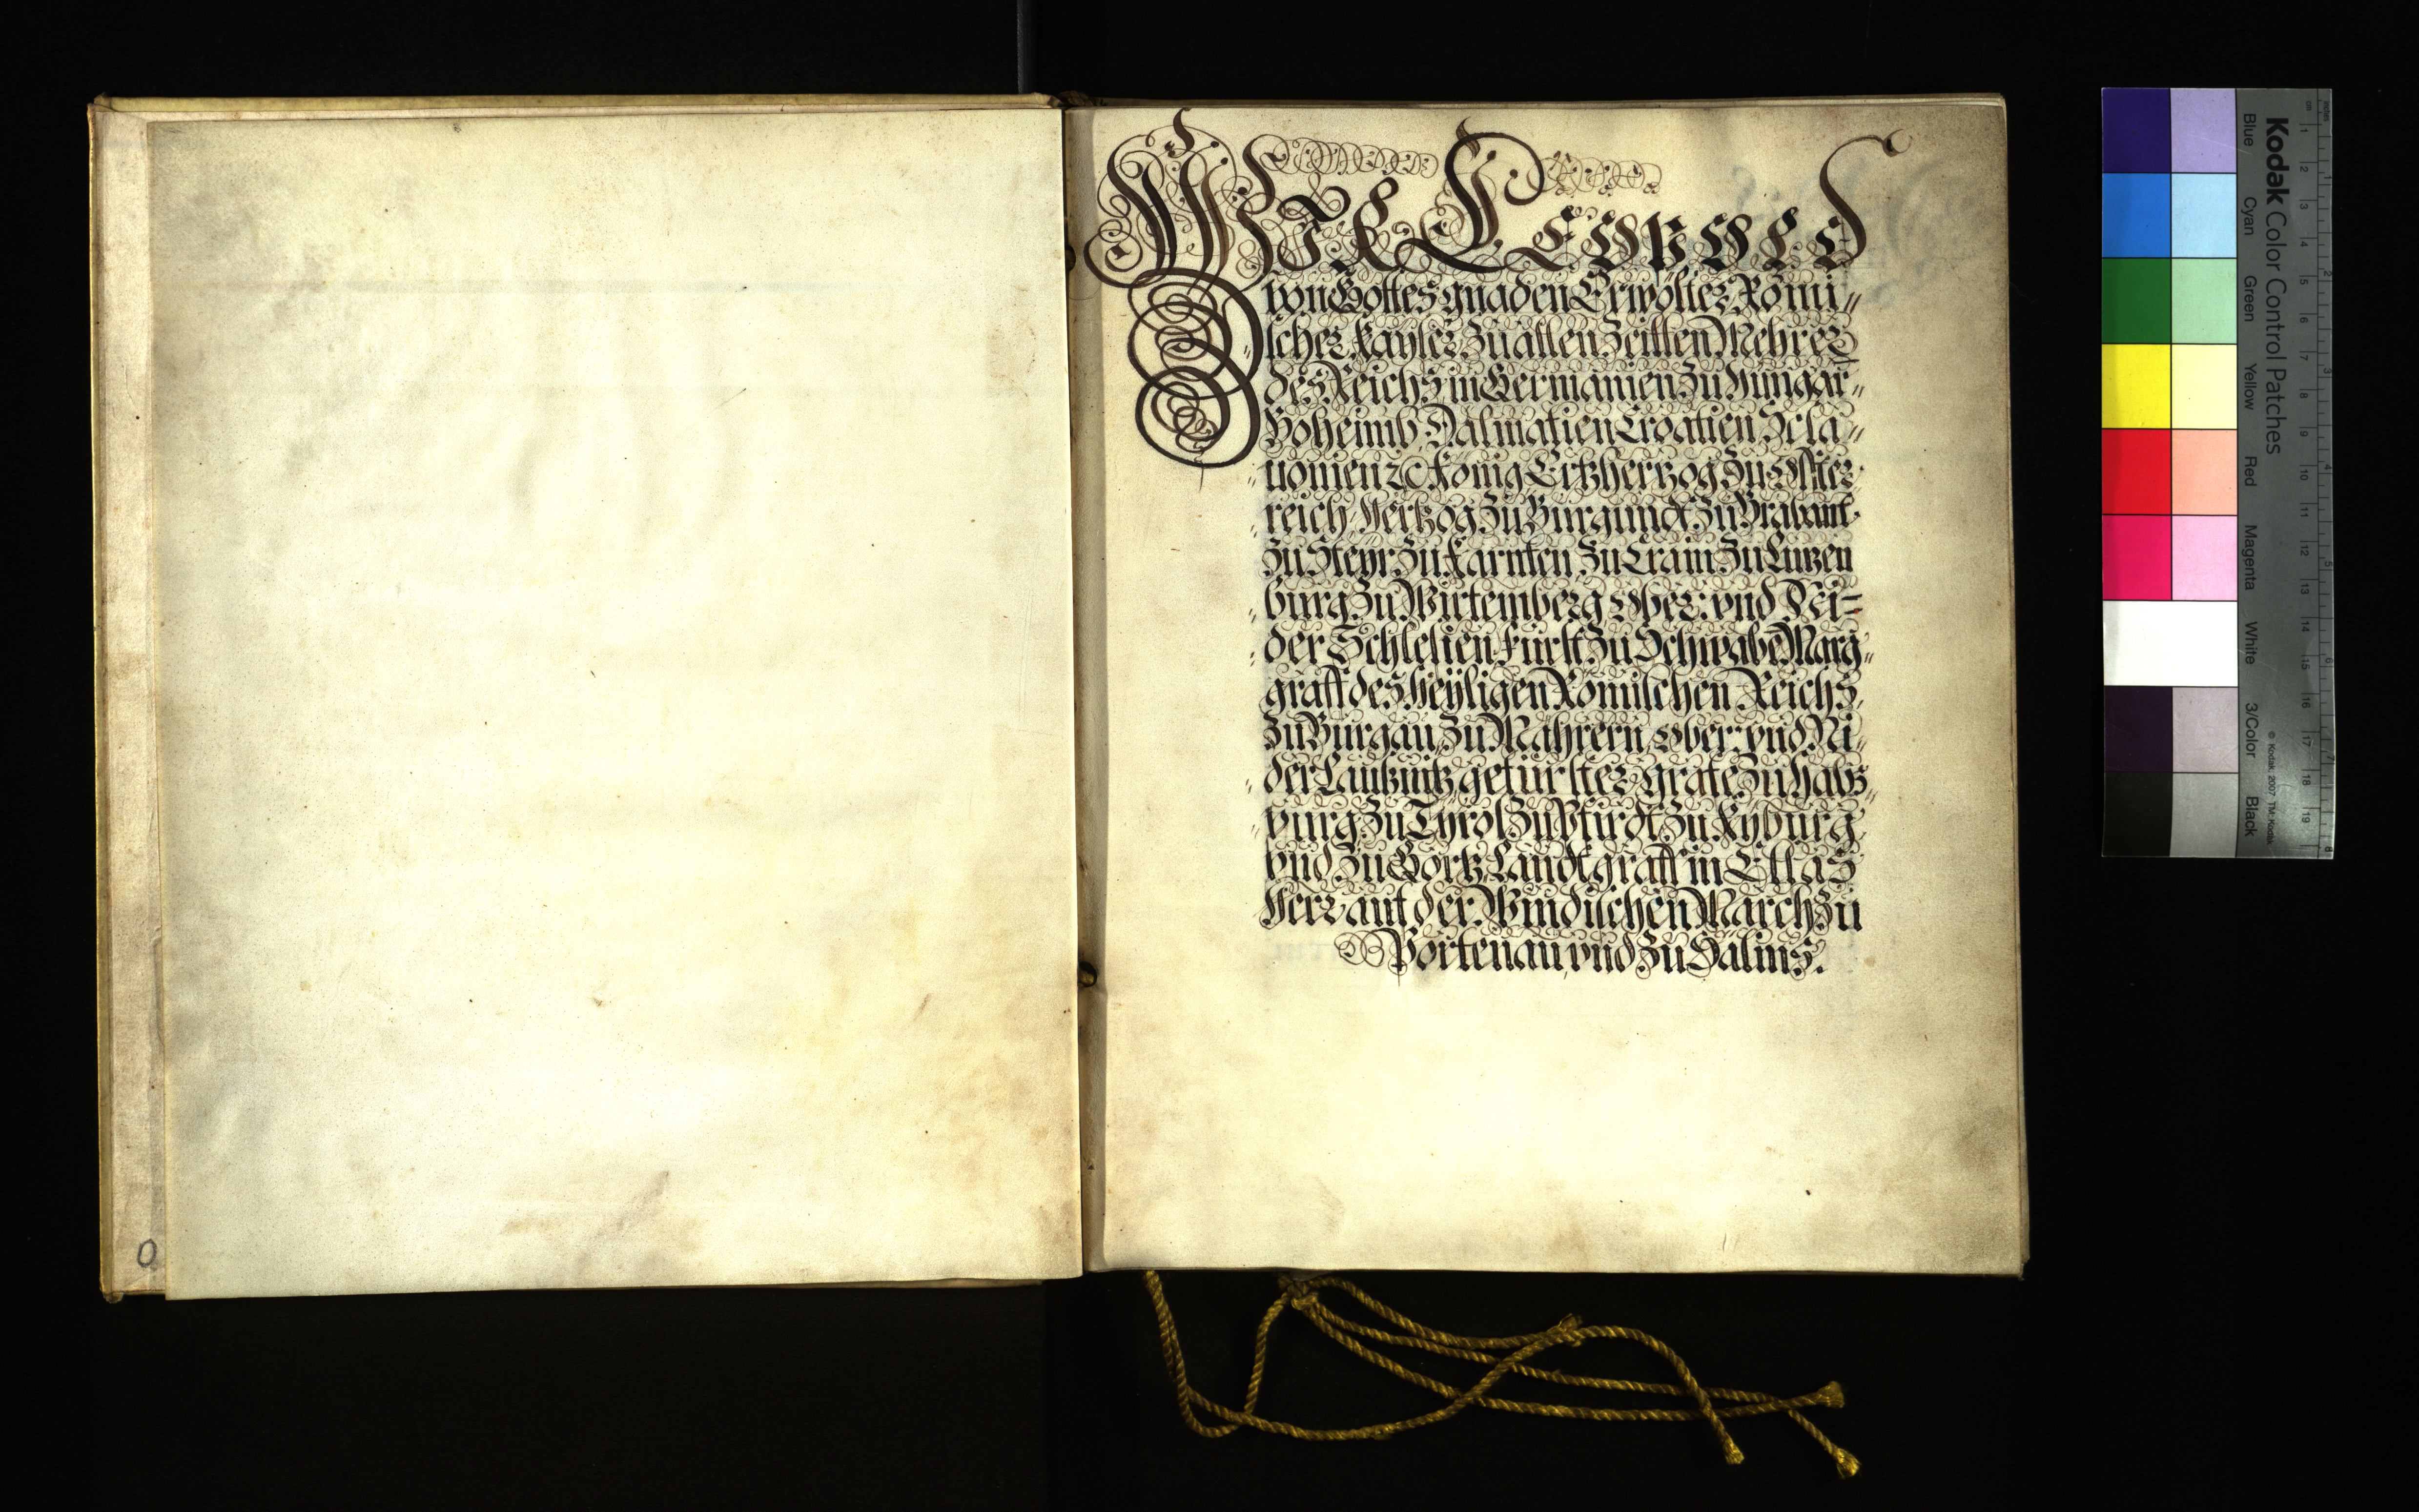 Wir Leopold
von Gottes gnaden Erwölter Römi⸗
scher Kayser zu allen Zeitten Mehrer
des Reichs in Germanien zu Hungar⸗
Boheimb Dalmatien Croatien Scla⸗
uonien ꝛc König Ertzhertzog zu Öster⸗
reich Hertzog zu Burgundt zu Brabant
zu Steyr zu Kärnten zu Crain zu Lützen
burg zu Wirtemberg Ober: vnd Ni⸗
der Schlesien Fürst zu Schwabē Marg⸗
graff des Heyligen Römischen Reichs
zu Burgau, zu Mährern, Ober: vnd Ni⸗
der Laußnitz gefürster Grafe zu Habs⸗
purg zu Tyrol zu Pfirdt zu Kyburg
vnd zu Görtz Landtgraff in Elsas
Herr auf der Windischen March zu
Portenau, vnd zu Salins.
0
Kodak Color Control Patches
© Kodak, 2007 TM: Kodak
Blue Cyan Green Yellow Red Magenta White 3/Color Black
cm 1 2 3 4 5 6 7 8 9 10 11 12 13 14 15 16 17 18 19
inches 1 2 3 4 5 6 7 8